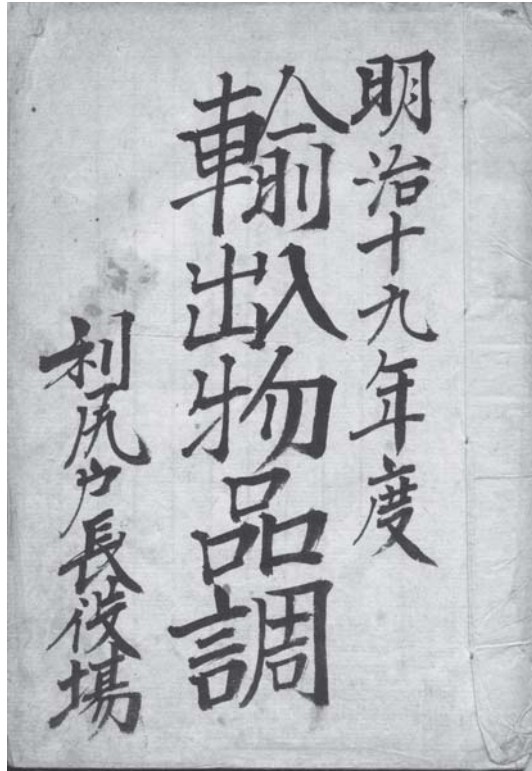 明治十九年度
輸出入物品調
利尻戸長役場